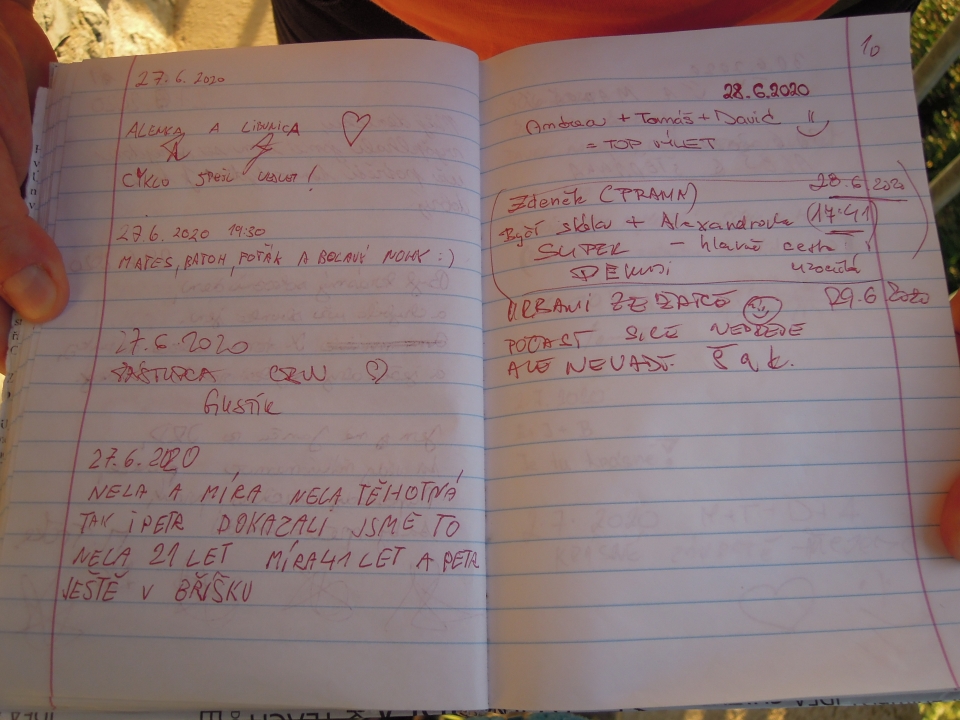 27.6.2020
ALENKA A LIBUNKA
CYKLO SPECIL VEDLET!
27.6.2020 19:50
MATES, BATOH, POŤÁK A BOLAVÝ NOHY :)
27.6.2020
CZW
Gustík
27.6.2020
NELA A MÍRA NELA TĚHOTNÁ
TAK I PETR DOKAZALI JSME TO
NELA 21 LET MÍRA 41 LET A PETR
JEŠTĚ V BŘÍŠKU
10
28.6.2020
Andrea + Tomáš + David
= TOP VÝLET
Zdeněk (PRAHA) 28.6 2020
Býčí skálu + Alexandrovka (17:41)
SUPER - hlavně cesta
DĚKUJI
URBANI ZE ŽATCE 29.6 2020
POČASÍ SICE
ALE NEVADÍ.